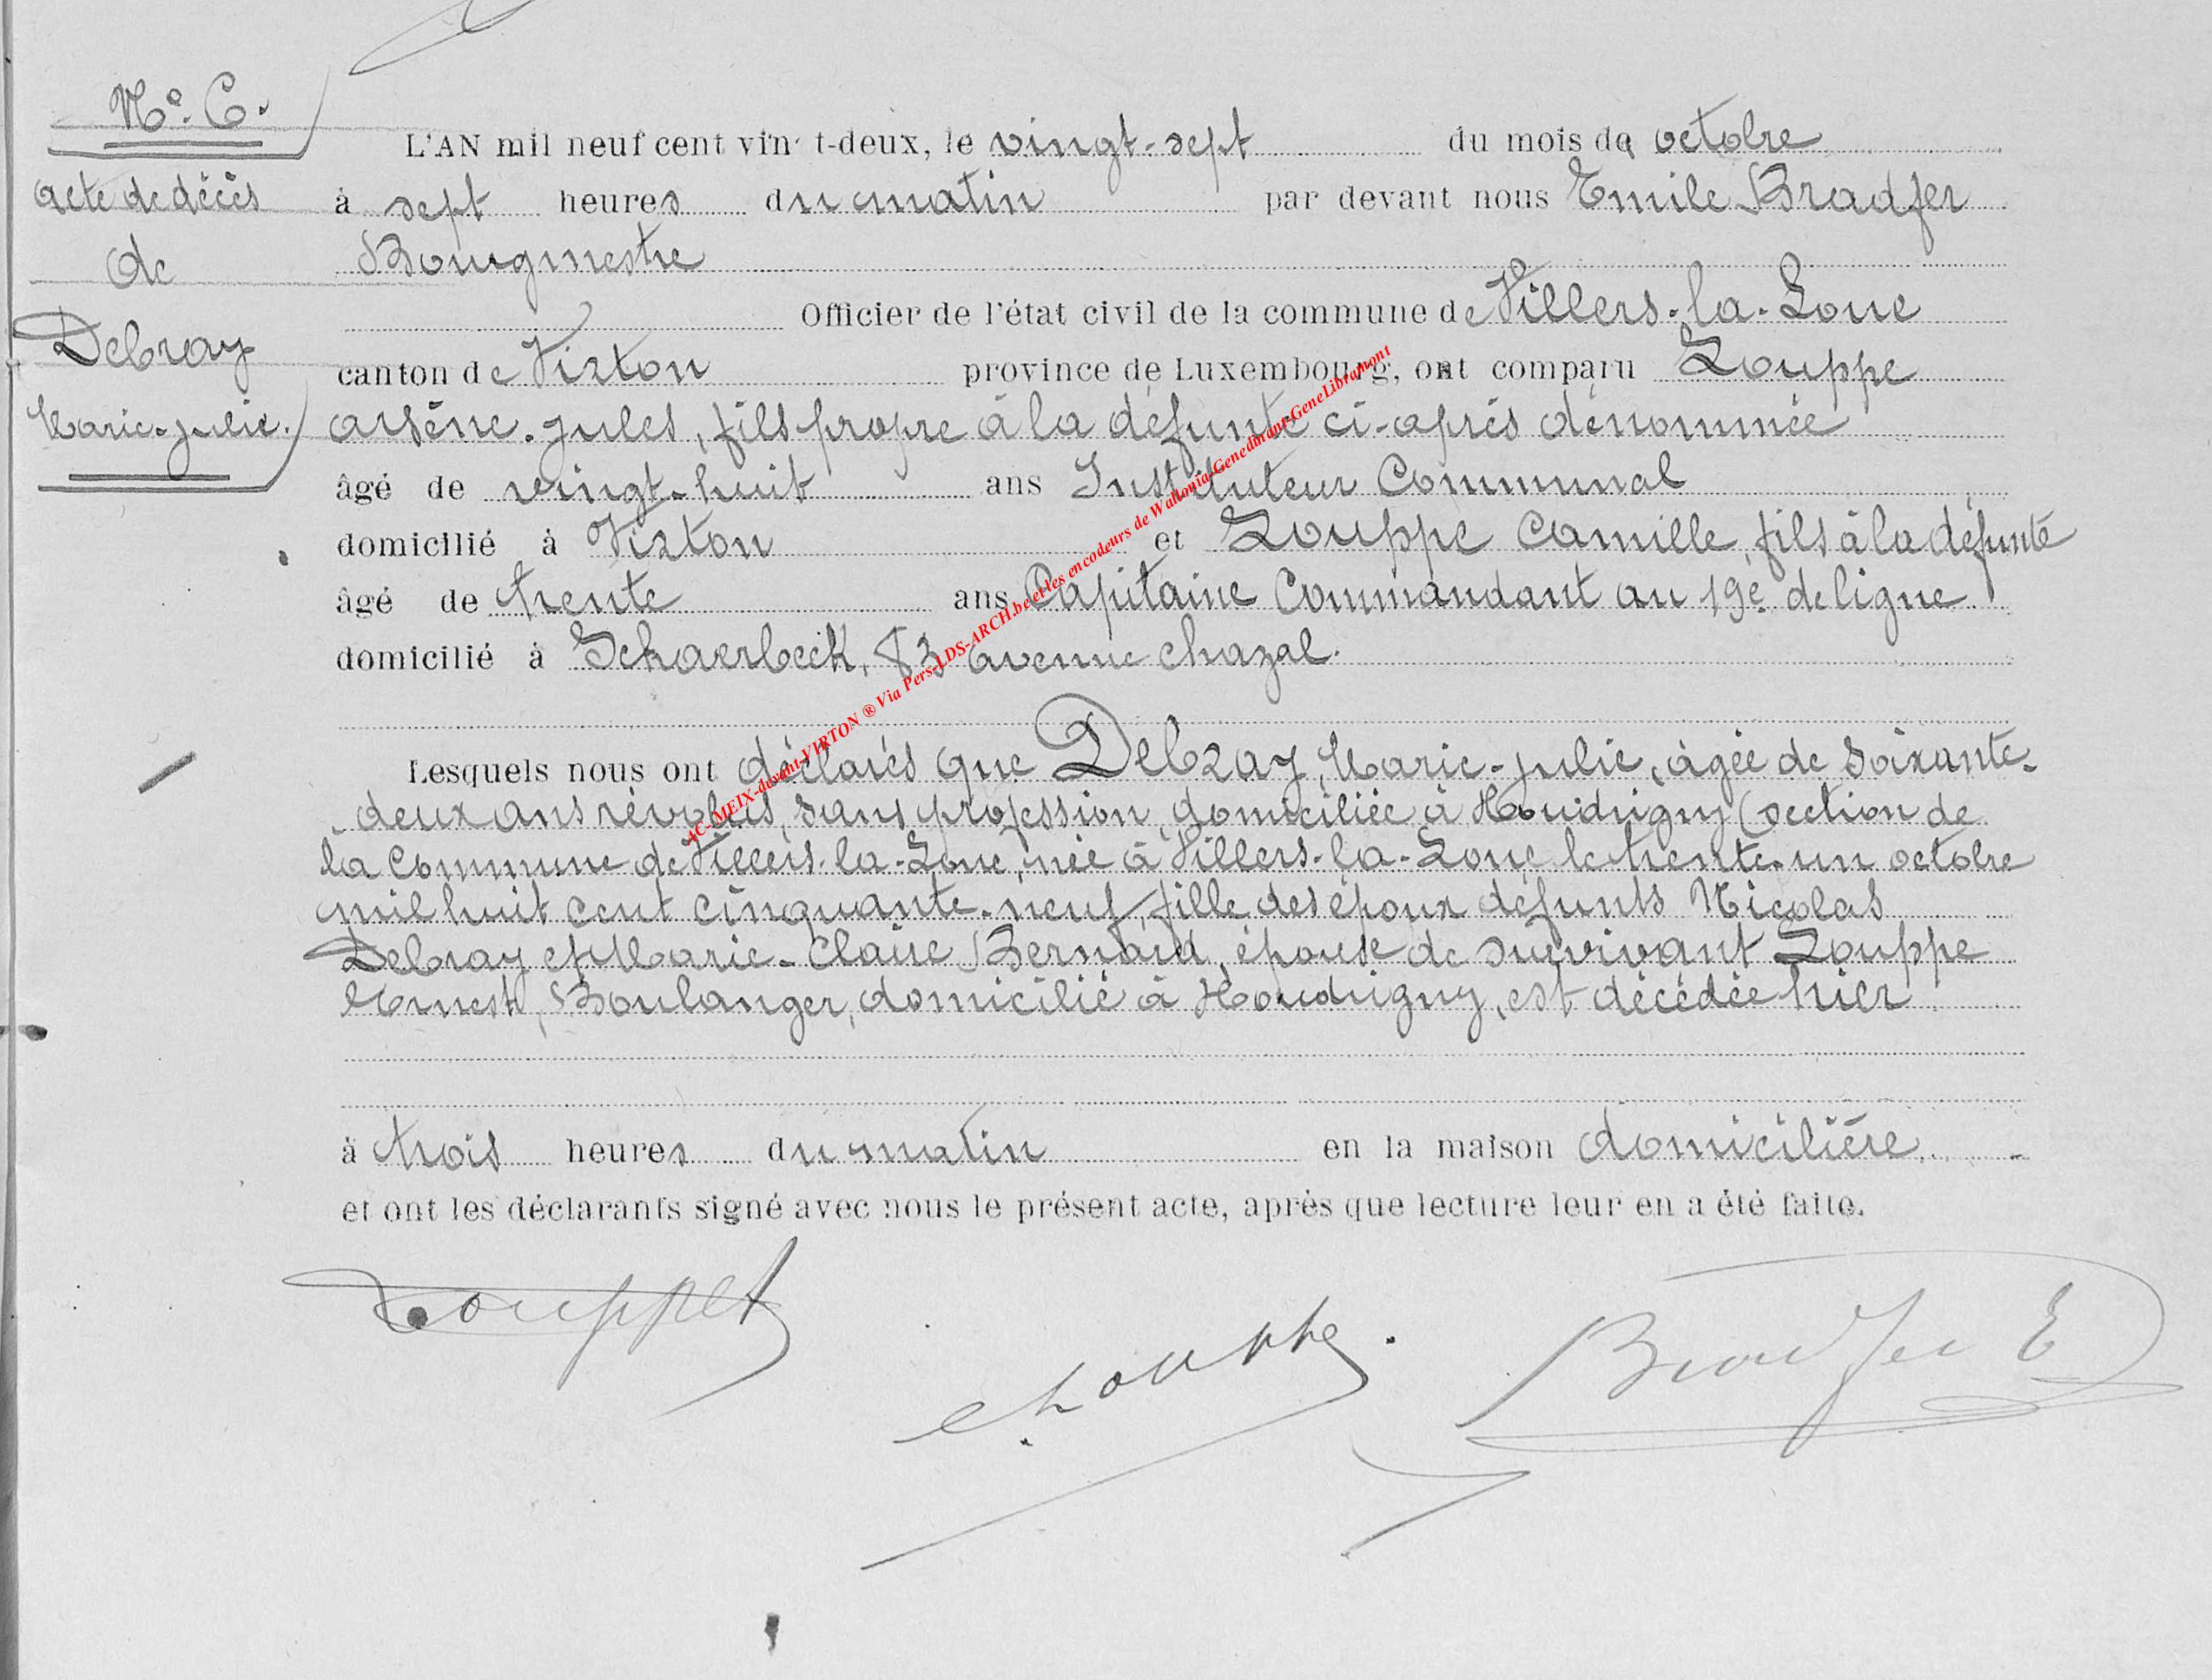 N° 6.
Acte de décès
de
Debray
Marie-Julie.
L'AN mil neuf cent vin t-deux, le vingt-sept du mois de octobre
à sept heures du matin par devant nous Emile Bradfer
Bougmestre
Officier de l'état civil de la commune de Villers-la-Loue
canton de Virton province de Luxembourg, ont comparu Louppe
Arsène-Jules, fils propre à la défunte ci-après dénommée
âgé de vingt-huit ans Instituteur Communal
domicilié à Virton et Louppe Camille, fils à la défunte
âgé de trente ans Capitaine Commandant au 19e de ligne
domicilié à Schaerbeek, 83 avenue Chazal.
Lesquels nous ont déclarés que Debray, Marie-Julie, âgée de soixante-
deux ans révolus, sans profession, domiciliée à Houdrigny (section de
la Commune de Villers-la-Loue, née à Villers-la-Loue le trente-un octobre
mil huit cent cinquante-neuf, fille des époux défunts Nicolas
Debray et Marie-Claire Bernard, épouse de survivant Louppe
Ernest, Boulanger, domicilié à Houdrigny, est décédée hier
à trois heures du matin en la maison domicilière
et ont les déclarants signé avec nous le présent acte, après que lecture leur en a été faite.
LouppeA
C. Louppe.
Bradfer E
AC-MEIX-devant-VIRTON ® Via Pers-LDS-ARCH.be et les encodeurs de Wallonia-Genedinant-GeneLibramont